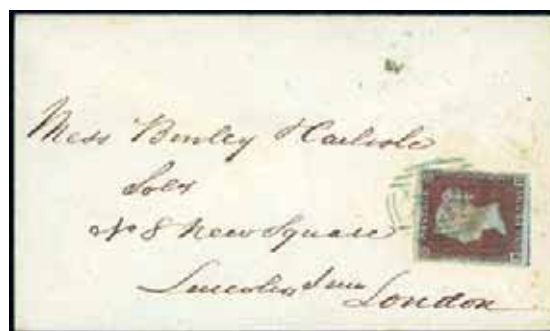 Mess Burley & Carlisle
Solrs
No 8 New Square
Lincolns Inn
London